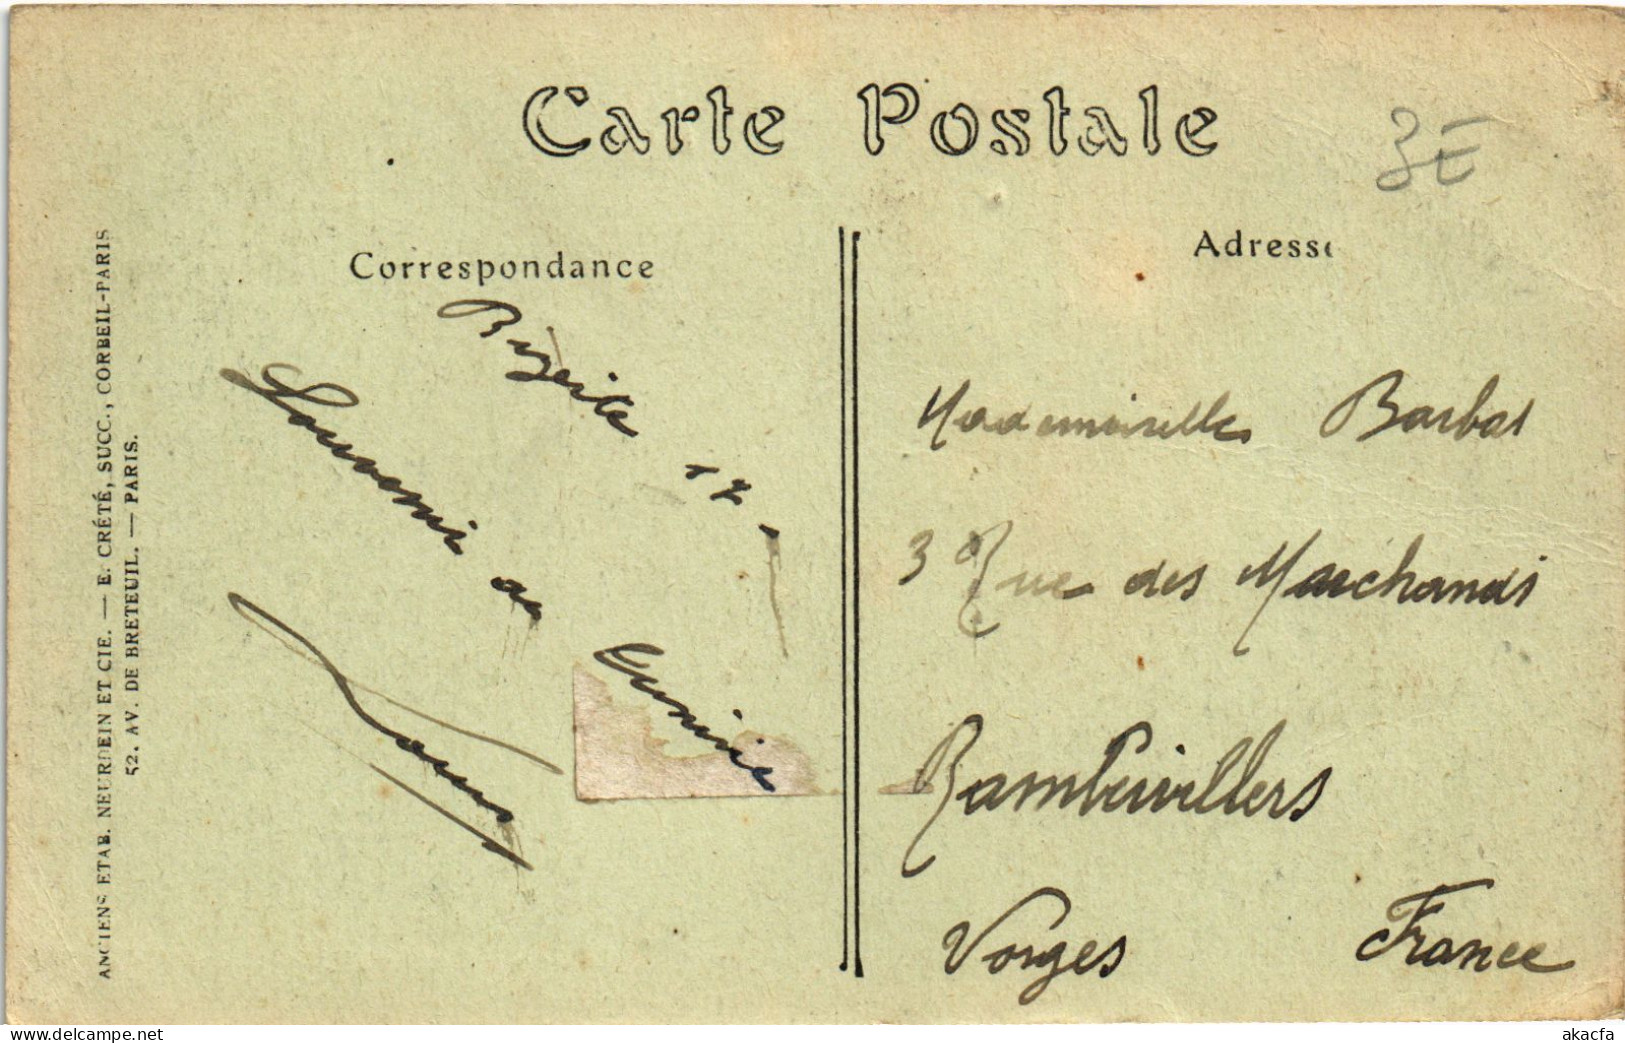 Carte Postale
3E
Correspondance
Adresse
Bizerte 17
Souvenir de
Tunisie
Mademoiselle Barbat
3 Rue des Marchands
Rambervillers
Vosges France
ANCIENS ETAB. NEURDEIN ET CIE. — E. CRÉTÉ, SUCC., CORBEIL-PARIS
52. AV. DE BRETEUIL. — PARIS.
www.delcampe.net
akacfa